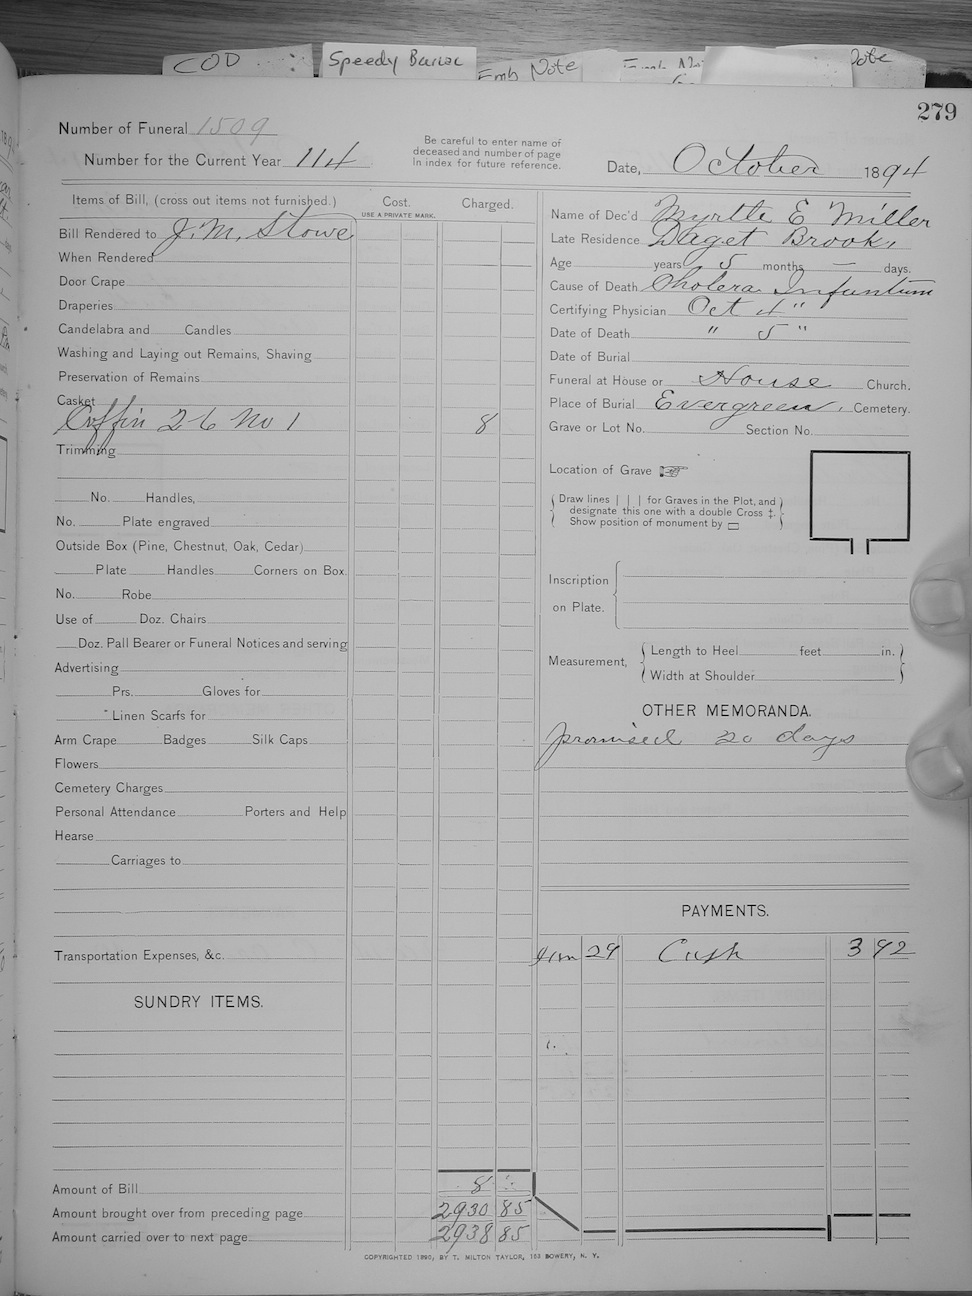 COD
Speedy Burial
Emb Note
Note
279
Number of Funeral 1509
Number for the Current Year 114
Be careful to enter name of
deceased and number of page
in index for future reference.
Date, October 1894
Items of Bill, (cross out items not furnished.)
Cost.
USE A PRIVATE MARK.
Charged.
Bill Rendered to J. M. Stowe
When Rendered
Door Crape
Draperies
Candelabra and Candles
Washing and Laying out Remains, Shaving
Preservation of Remains
Casket
Coffin 2-6 No 1 8
Trimming
No. Handles,
No. Plate engraved
Outside Box (Pine, Chestnut, Oak, Cedar)
Plate Handles Corners on Box
No. Robe
Use of Doz. Chairs
Doz. Pall Bearer or Funeral Notices and serving
Advertising
Prs. Gloves for
" Linen Scarfs for
Arm Crape Badges Silk Caps
Flowers
Cemetery Charges
Personal Attendance Porters and Help
Hearse
Carriages to
Transportation Expenses, &c.
SUNDRY ITEMS.
Amount of Bill 8
Amount brought over from preceding page 2930 85
Amount carried over to next page 2938 85
Name of Dec'd Myrtle E Miller
Late Residence Daget Brook,
Age years 5 months — days.
Cause of Death Cholera Infantum
Certifying Physician Oct 4 "
Date of Death " 5 "
Date of Burial
Funeral at House or House Church.
Place of Burial Evergreen. Cemetery.
Grave or Lot No. Section No.
Location of Grave
Draw lines | | | for Graves in the Plot, and
designate this one with a double Cross ‡.
Show position of monument by ▭
Inscription
on Plate.
Measurement,
Length to Heel feet in.
Width at Shoulder
OTHER MEMORANDA.
promised 20 days
PAYMENTS.
29 Cash 3 92
COPYRIGHTED 1890, BY T. MILTON TAYLOR, 153 BOWERY, N. Y.